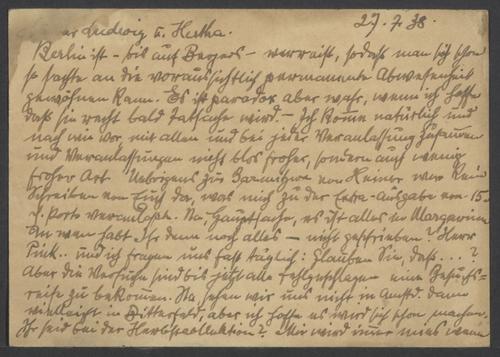 27.7.38.
Ludwig u. Hertha.
Berlin ist - bis auf Beyers - verreist, sodass man sich schon
so sachte an die voraussichtlich permanente Abwesenheit
gewöhnen kann. Es ist paradox aber wahr, wenn ich hoffe
dass sie recht bald Tatsache wird. - Ich komme natürlich nur
nach wie vor mit allen und bei jeder Veranlassung zusammen
und Veranlassungen nicht blos froher, sondern auch wenig
froher Art. Uebrigens zur von Heiner war kein
Schreiben von Euch da, was mich zu der Extra-Ausgabe von 15
Porto veranlasste. Na, Hauptsache, es ist alles in Margarine.
An wen habt Ihr denn noch alles - nicht geschrieben? Herr
Pink.. und ich fragen uns fast täglich: Glauben Sie, dass ...?
Aber die Versuche sind bis jetzt alle fehlgeschlagen eine Besuchs=
reise zu bekommen. Na, sehen wir uns nicht in dann
vielleicht in Bitterfeld, aber ich hoffe es wird sich schon machen.
Ihr seid bei der Herbstkollektion? Mir wird immer mies wenn